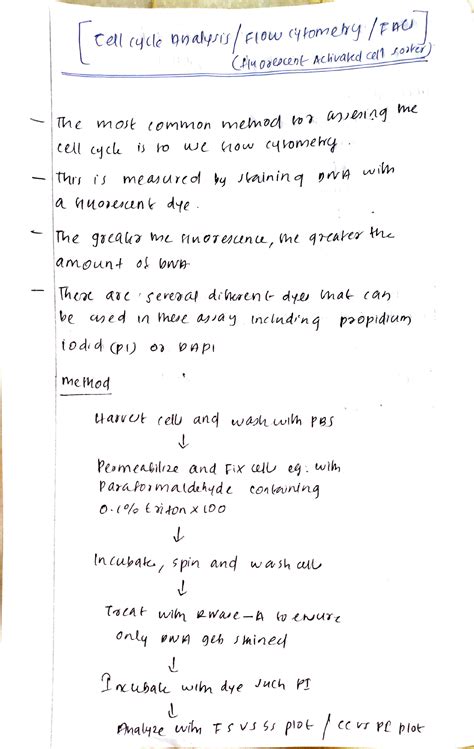 Cell cycle Analysis / Flow cytometry / FACS
(fluorescent Activated cell sorter)
— The most common method for assessing the
cell cycle is to use flow cytometry.
— This is measured by staining DNA with
a fluorescent dye.
— The greater the fluorescence, the greater the
amount of DNA
— There are several different dyes that can
be used in these assay including propidium
iodid (PI) or DAPI
method
Harvest cell and wash with PBS
↓
Permeabilize and Fix cell eg: with
paraformaldehyde containing
0.1% triton X 100
↓
Incubate, spin and wash cell
↓
Treat with RNase-A to ensure
only DNA gets stained
↓
Incubate with dye such PI
↓
Analyze with FS vs SS plot / CC vs PE plot